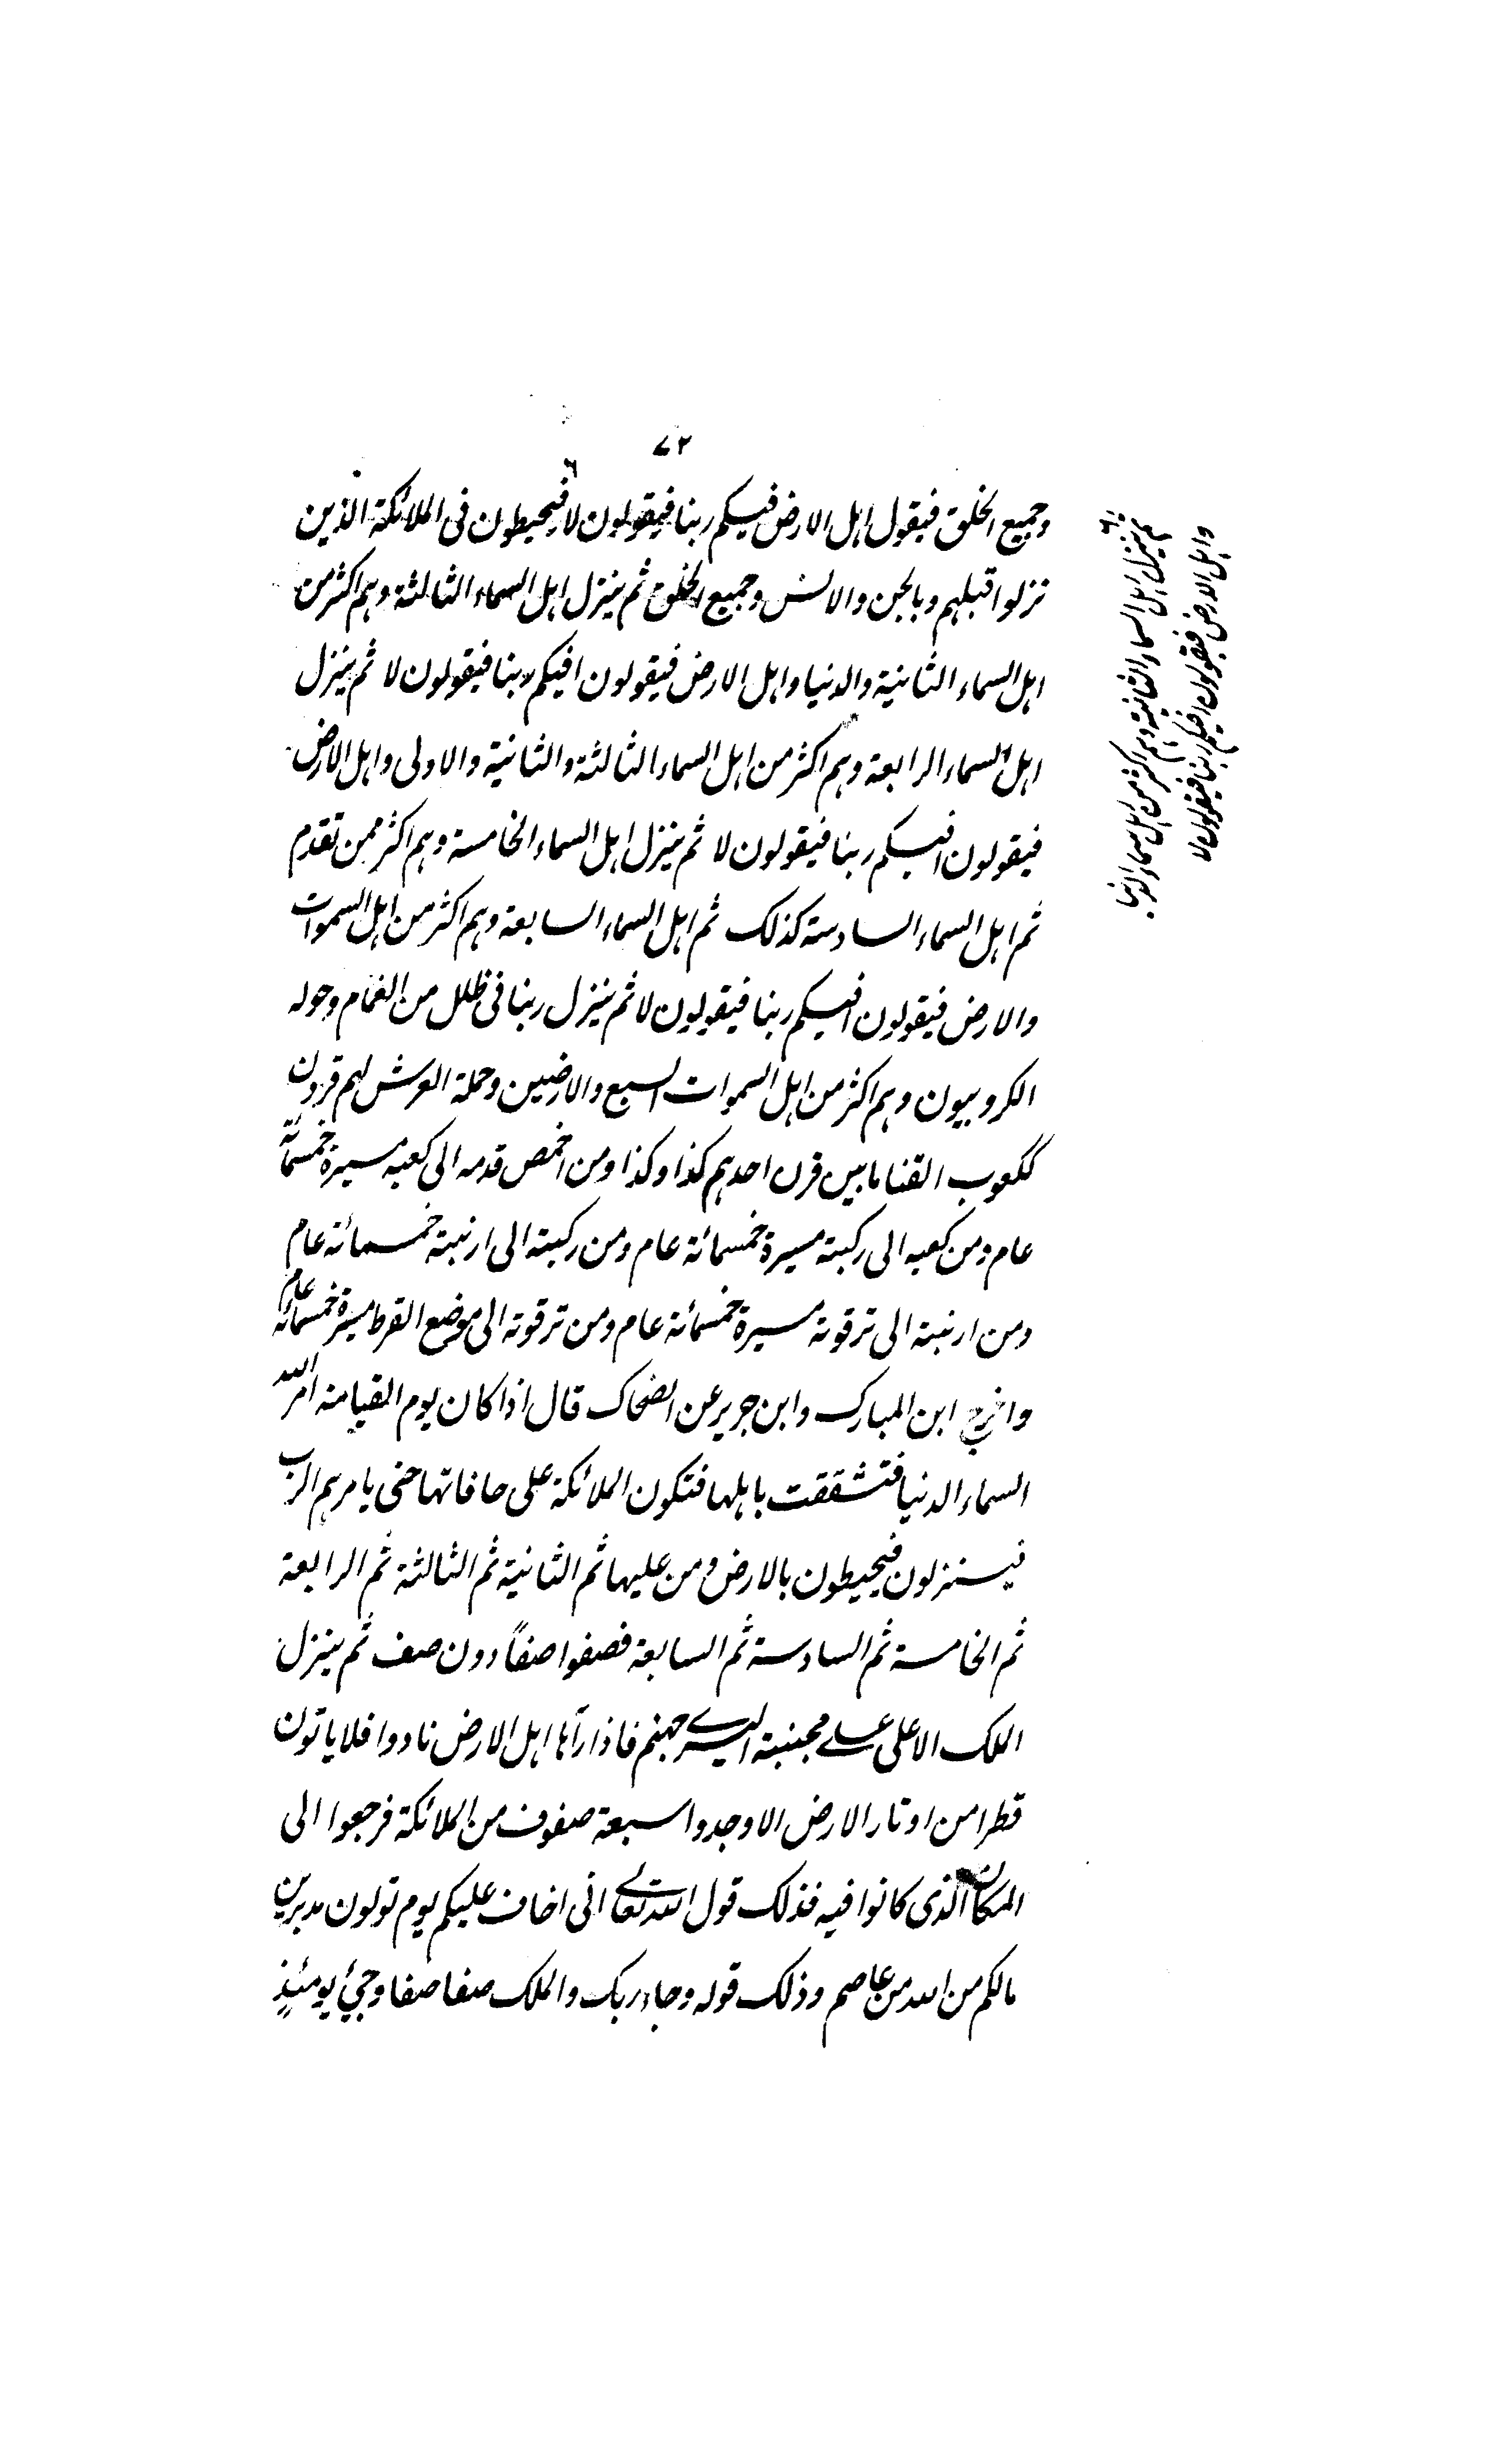 ٧٢
وجميع الخلق فيقول اهل الارض فيكم ربنا فيقولون لا فيحيطون فى الملائكة الذين
نزلوا قبلهم وبالجن والانس وجميع الخلق ثم ينزل اهل السماء الثالثة وهم اكثر من
اهل السماء الثانية والدنيا واهل الارض فيقولون افيكم ربنا فيقولون لا ثم ينزل
اهل السماء الرابعة وهم اكثر من اهل السماء الثالثة والثانية والاولى واهل الارض
فيقولون افيكم ربنا فيقولون لا ثم ينزل اهل السماء الخامسة وهم اكثر ممن تقدم
ثم اهل السماء السادسة كذلك ثم اهل السماء السابعة وهم اكثر من اهل السموات
والارض فيقولون افيكم ربنا فيقولون لا ثم ينزل ربنا فى ظلل من الغمام وحوله
الكروبيون وهم اكثر من اهل السموات السبع والارضين وحملة العرش لهم قرون
ككعوب القنا مابين قرن احدهم كذا وكذا ومن اخمص قدمه الى كعبه مسيرة خمسمائة
عام ومن كعبه الى ركبته مسيرة خمسمائة عام ومن ركبته الى ارنبته خمسمائة عام
ومن ارنبته الى ترقوته مسيرة خمسمائة عام ومن ترقوته الى موضع القرط مسيرة خمسمائة عام
واخرج ابن المبارك وابن جرير عن الضحاك قال اذا كان يوم القيامة امر الله
السماء الدنيا فتشققت باهلها فتكون الملائكة على حافاتها حتى يامرهم الرب
فينزلون فيحيطون بالارض ومن عليها ثم الثانية ثم الثالثة ثم الرابعة
ثم الخامسة ثم السادسة ثم السابعة فصفوا صفاً دون صف ثم ينزل
الملك الاعلى على مجنبته اليسرى جهنم فاذا رآها اهل الارض نادوا فلا ياتون
قطرا من اوتار الارض الا وجدوا سبعة صفوف من الملائكة فرجعوا الى
المكان الذى كانوا فيه فذلك قول الله تعالى انى اخاف عليكم يوم تولون مدبرين
مالكم من الله من عاصم وذلك قوله وجاء ربك والملك صفا صفا وجئ يومئذٍ
ثم ينزل اهل السماء الثانية وهم اكثر من اهل سماء الدنيا
واهل الارض فيقولون افيكم ربنا فيقولون لا